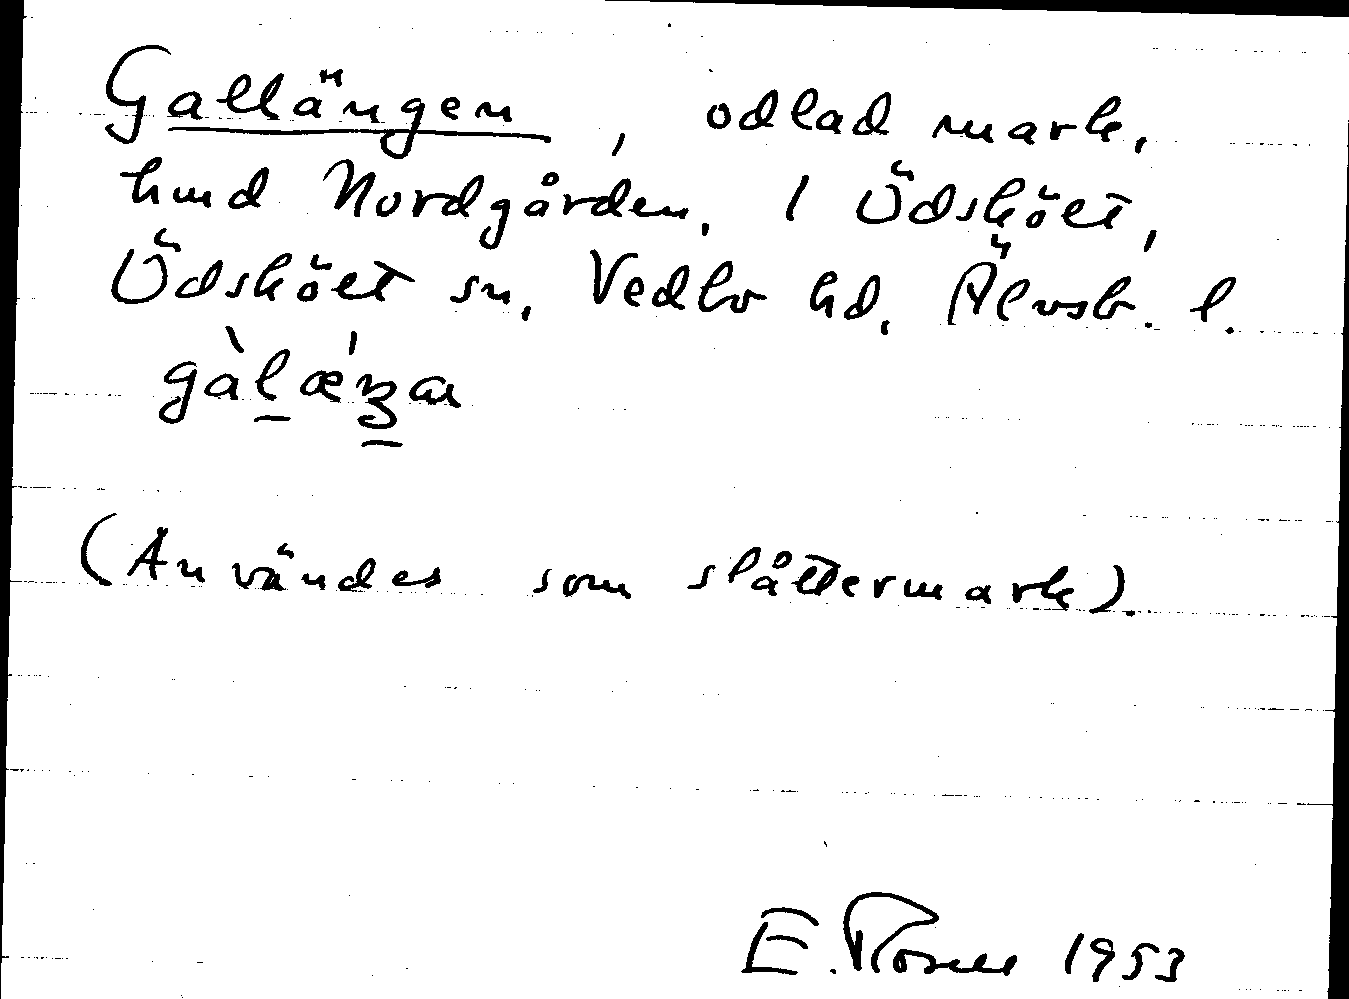 Gallängen, odlad mark,
hmd Nordgården, 1 Ödskölt,
Ödskölt sn, Vedbo hd, Älvsb. l.
(Användes som slåttermark).
E. 1953